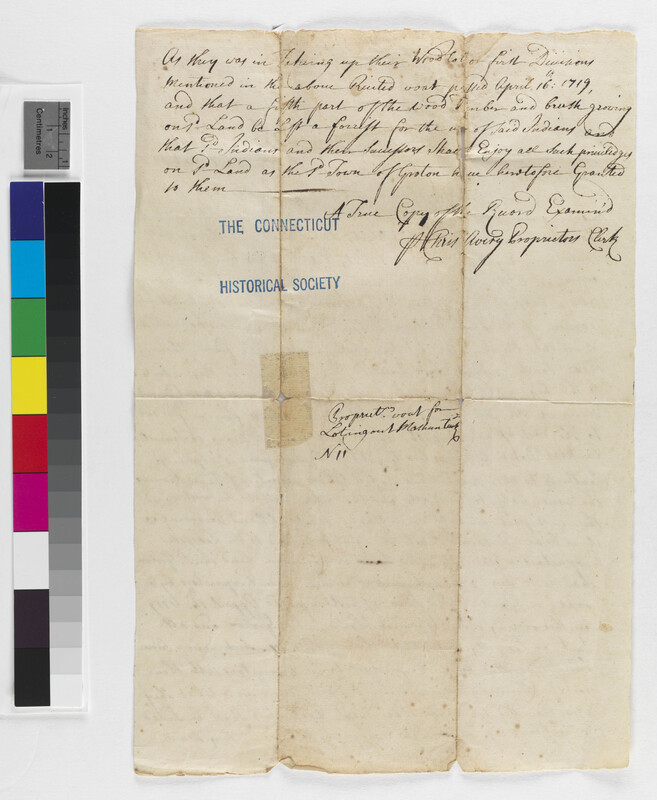 As they was in takeing up their Wood Lot or first Divisions
mentioned in the above Recited voat passed April 16th: 1719,
and that a fifth part of the wood Timber and brush growing
on sd Land be Left a forest for the use of said Indians and
that sd Indians and their Successors Shall Enjoy all Such priviledges
on sd Land as the sd Town of Groton have heretofore Granted
to them
A True Copy of the Record Examind
Chris Avery Proprietors Clerk
THE CONNECTICUT
HISTORICAL SOCIETY
Propriet.rs voat for
Loting out
N 11
Inches
Centimetres
1
2